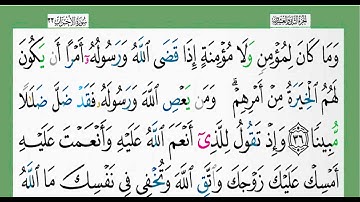 الجزء الثاني والعشرون سورة الأحزاب ٣٣
وَمَا كَانَ لِمُؤْمِنٍ وَلَا مُؤْمِنَةٍ إِذَا قَضَى ٱللَّهُ وَرَسُولُهُۥٓ أَمْرًا أَن يَكُونَ
لَهُمُ ٱلْخِيَرَةُ مِنْ أَمْرِهِمْ ۗ وَمَن يَعْصِ ٱللَّهَ وَرَسُولَهُۥ فَقَدْ ضَلَّ ضَلَـٰلًا
مُّبِينًا ٣٦ وَإِذْ تَقُولُ لِلَّذِىٓ أَنْعَمَ ٱللَّهُ عَلَيْهِ وَأَنْعَمْتَ عَلَيْهِ
أَمْسِكْ عَلَيْكَ زَوْجَكَ وَٱتَّقِ ٱللَّهَ وَتُخْفِى فِى نَفْسِكَ مَا ٱللَّهُ